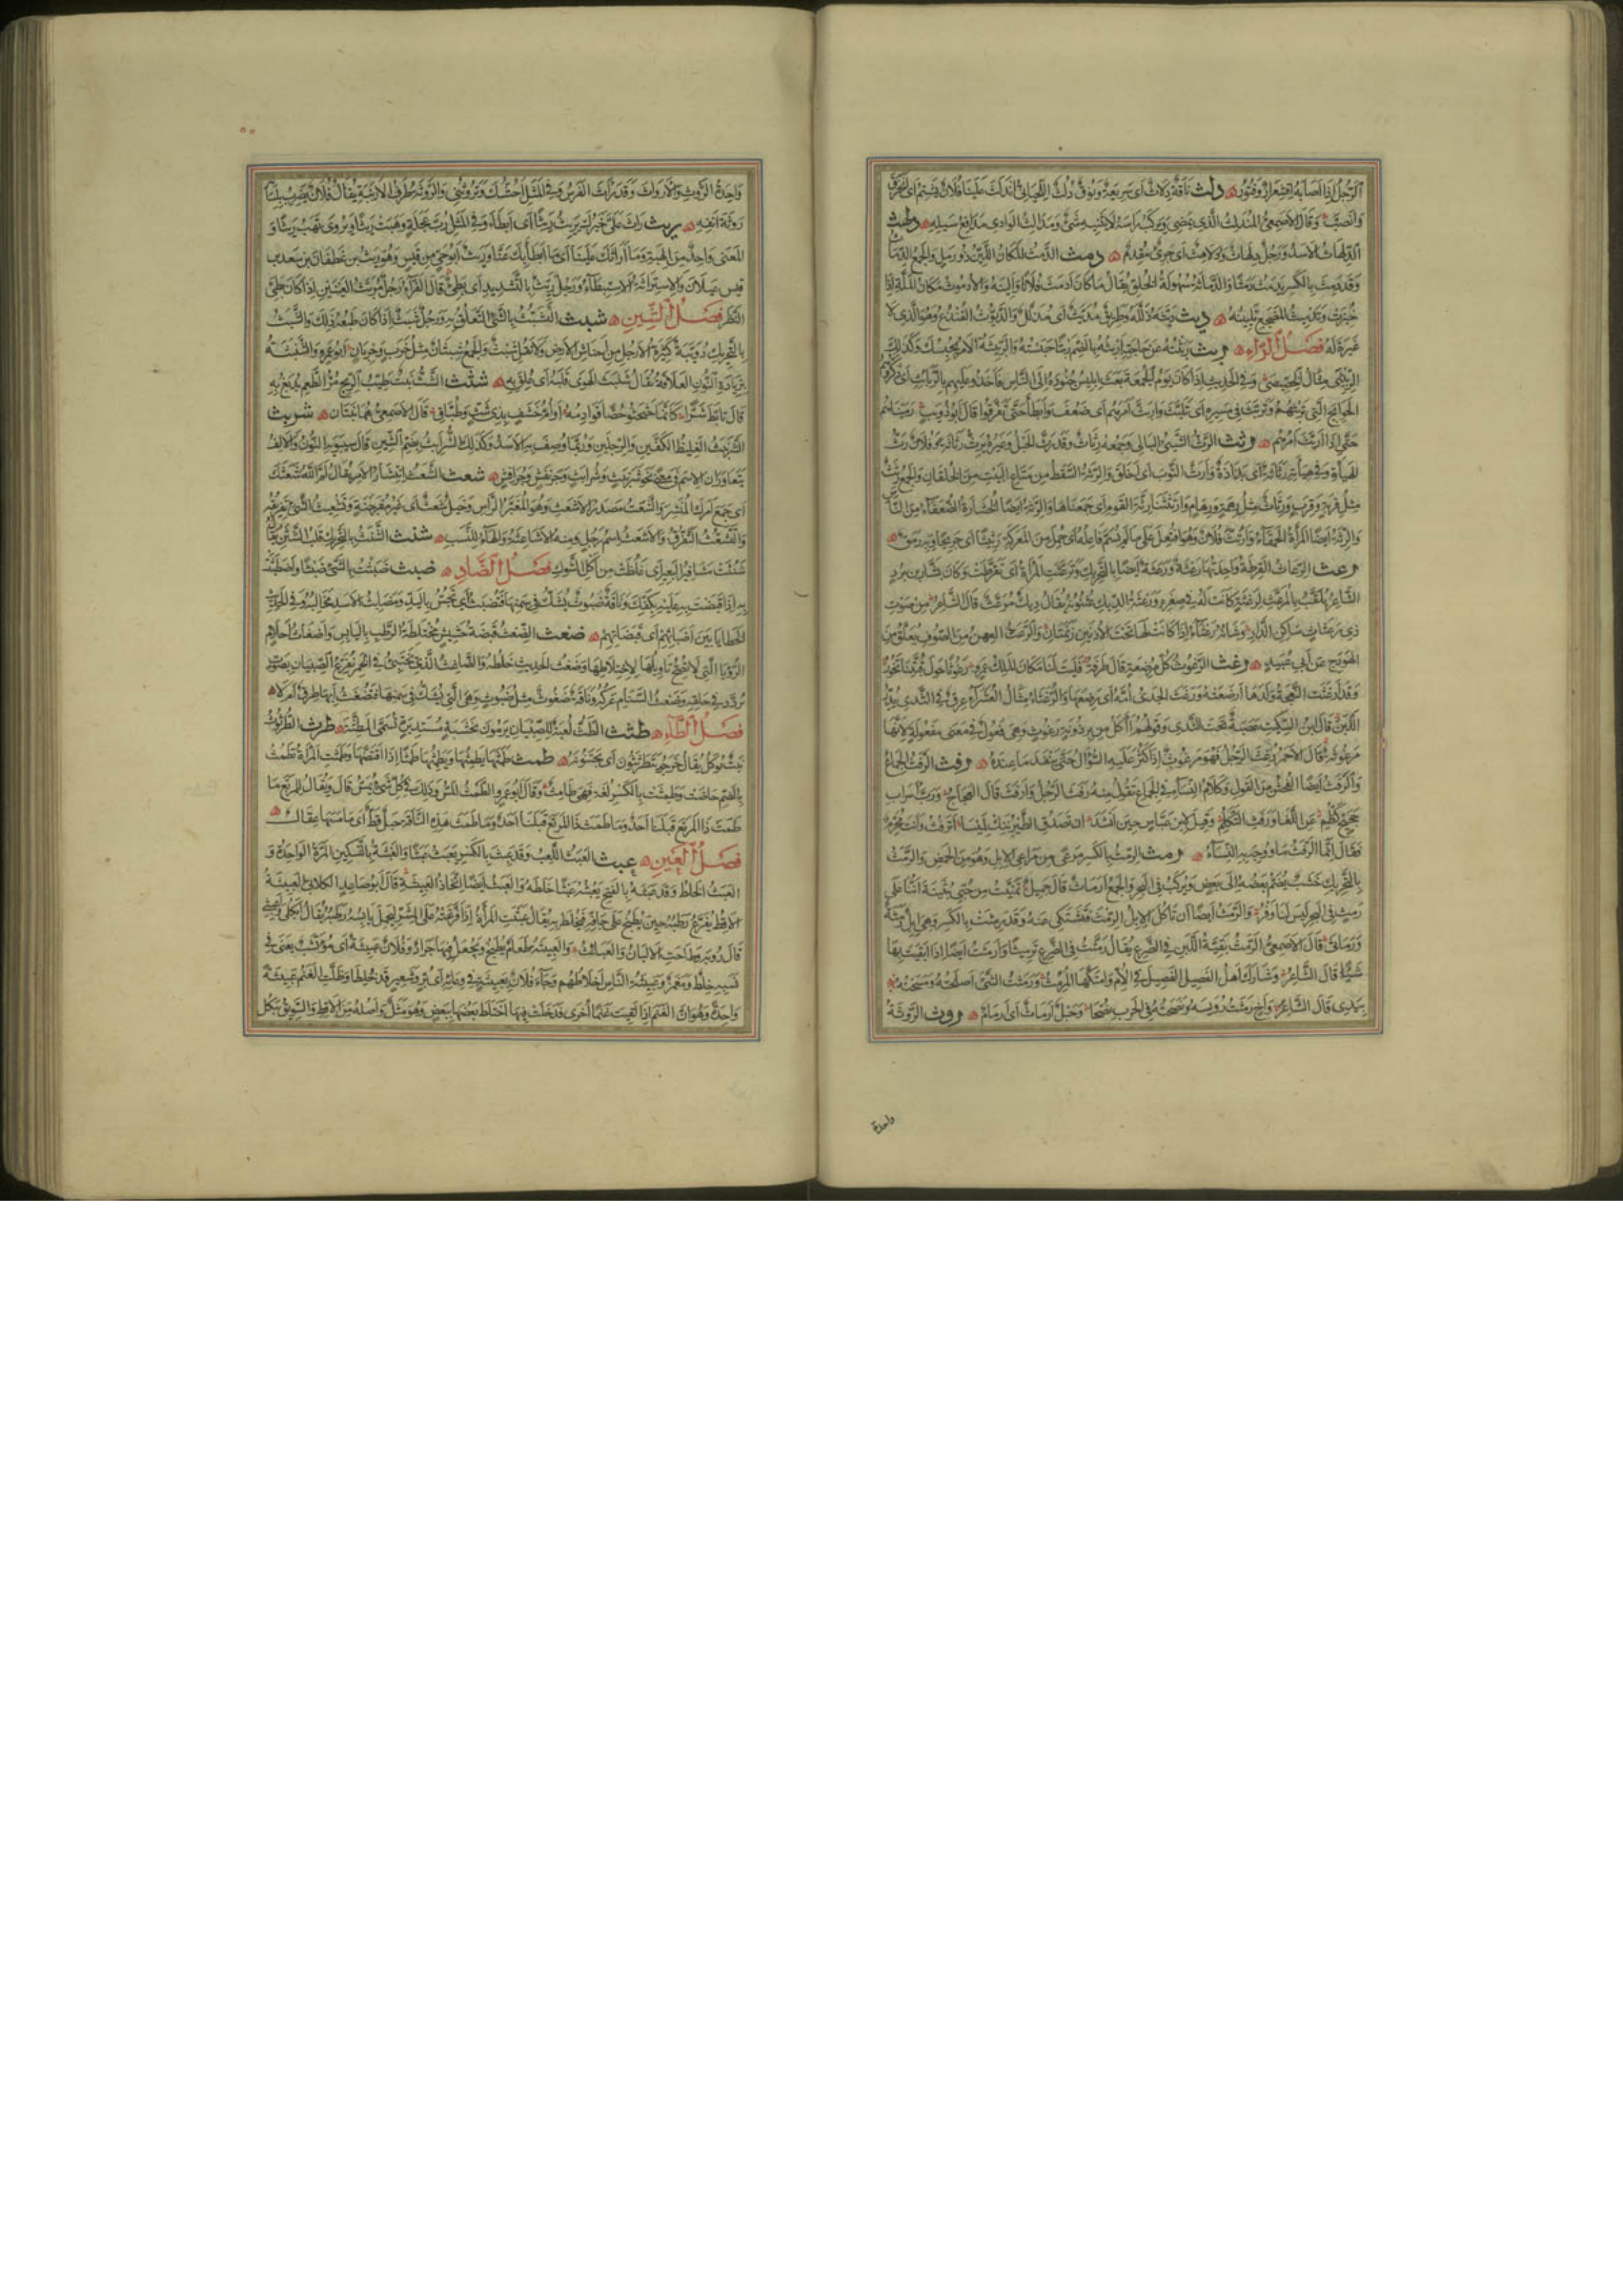 الرجل إذا أصابه اقشعرار وفتور دلث ناقة دلاث أي سريعة ونوق دلث اللحياني اندلث علينا فلان يشتم أي انخرق
وانصب وقال الأصمعي المندلث الذي يمضي ويركب رأسه لا يثنيه شيء ومدالث الوادي مدافع سيله دلهث
الدلهاث الأسد ورجل دلهاث ودلاهث أي جريء مقدم دمث الدمث المكان اللين ذو رمل والجمع الدماث
وقد دمث بالكسر يدمث دمثا والدماثة سهولة الخلق يقال ما كان أدمث فلانا وألينه والأدموث مكان الملة إذا
خبزت وتدميث المضجع تليينه ديث ديثه ذلله وطريق مديث أي مذلل والديوث القنذع وهو الذي لا
غيرة له فصل الراء ربث ربثته عن حاجته أربثه بالضم ربثا حبسته والربيثة الأمر يحبسك وكذلك
الربيثى مثال الخصيصى وفي الحديث إذا كان يوم الجمعة بعث إبليس جنوده إلى الناس فأخذوا عليهم بالربائث أي ذكروهم
الحوائج التي تربثهم وتربث في مسيره أي تلبث واربث أمرهم أي ضعف وأبطأ حتى تفرقوا قال أبو ذؤيب رميناهم
حتى إذا اربث أمرهم رثث الرث الشيء البالي وجمعه رثاث وقد رث الحبل وغيره يرث رثاثة وفلان رث
الهيأة وفي هيأته رثاثة أي بذاذة وأرث الثوب أي أخلق والرثة السقط من متاع البيت من الخلقان والجمع رثث
مثل قربة وقرب ورثاث مثل رهمة ورهام وارتثثنا رثة القوم أي جمعناها والرثة أيضا الخشارة الضعفاء من الناس
والرثة أيضا المرأة الحمقاء وارتث فلان وهو افتعل على ما لم يسم فاعله أي حمل من المعركة رثيثا أي جريحا وبه رمق
رعث الرعاث القرطة واحدتها رعثة ورعثة أيضا بالتحريك وترعثت المرأة أي تقرطت وكان بشار بن برد
الشاعر يلقب بالمرعث لرعثة كانت له في صغره ورعثة الديك عثنونه يقال ديك مرعث قال الشاعر من صوت
ذي رعثات ساكن الدار وشاة رعثاء إذا كانت لها تحت الأذنين زنمتان والرعث العهن من الصوف يعلق من
الهودج عن أبي عبيد رغث الرغوث كل مرضعة قال طرفة فليت لنا مكان الملك عمرو رغوثا حول قبتنا تخور
وقد أرغثت النعجة ولدها أرضعته ورغث الجدي أمه أي رضعها والرغثاء مثال العشراء عرق في الثدي يدر
اللبن قال ابن السكيت عصبة تحت الثدي وقولهم آكل من برذونة رغوث وهي فعول في معنى مفعولة لأنها
مرغوثة قال الأحمر رغث الرجل فهو مرغوث إذا كثر عليه السؤال حتى ينفد ما عنده رفث الرفث الجماع
والرفث أيضا الفحش من القول وكلام النساء في الجماع تقول منه رفث الرجل وأرفث قال العجاج ورب أسراب
حجيج كظم عن اللغا ورفث التكلم وقيل لابن عباس حين أنشد إن تصدق الطير ننك لميسا أترفث وأنت محرم
فقال إنما الرفث ما ووجه به النساء رمث الرمث بالكسر مرعى من مراعي الإبل وهو من الحمض والرمث
بالتحريك خشب يضم بعضه إلى بعض ويركب في البحر والجمع أرماث قال جميل تمنيت من حبي بثينة أننا على
رمث في البحر ليس لنا وفر والرمث أيضا أن تأكل الإبل الرمث فتشتكي عنه وقد رمثت بالكسر وهي إبل رمثة
ورماثى قال الأصمعي الرمث بقية اللبن في الضرع يقال رمثت في الضرع ترميثا وأرمثت أيضا إذا أبقيت بها
شيئا قال الشاعر وشارك أهل الفصيل الفصيل في الأم وامتكها المرمث ورمثت الشيء أصلحته ومسحته
بيدي قال الشاعر وأخ رمثت رويسه ونصحته في الحرب نصحا وحبل أرماث أي أرمام روث الروثة
واحدة
واحدة الروث والأرواث وقد راث الفرس وفي المثل أحشك وتروثني والروثة طرف الأرنبة يقال فلان يضرب بلسانه
روثة أنفه ريث راث علي خبرك يريث ريثا أي أبطأ وفي المثل رب عجلة وهبت ريثا ويروى تهب ريثا و
المعنى واحد من الهبة وما أراثك علينا أي ما أبطأ بك عنا وريث أبو حي من قيس وهو ريث بن غطفان بن سعد بن
قيس عيلان والاستراثة الاستبطاء ورجل ريث بالتشديد أي بطيء قال الفراء رجل مريث العينين إذا كان بطيء
النظر فصل الشين شبث التشبث بالشيء التعلق به ورجل شبث إذا كان طبعه ذلك والشبث
بالتحريك دويبة كثيرة الأرجل من أحناش الأرض ولا تقل شبث والجمع شبثان مثل خرب وخربان أبو عمرو الشنبثة
بزيادة النون العلاقة يقال شنبث الهوى قلبه أي علق به شثث الشث نبت طيب الريح مر الطعم يدبغ به
قال تأبط شرا كأنما حثحثوا حصا قوادمه أو أم خشف بذي شث وطباق قال الأصمعي هما نبتان شربث
الشرنبث الغليظ الكفين والرجلين وربما وصف به الأسد وكذلك الشرابث بضم الشين قال سيبويه النون والألف
يتعاوران الاسم في معنى نحو شرنبث وشرابث وجرنفش وجرافش شعث الشعث انتشار الأمر يقال لم الله شعثك
أي جمع أمرك المنتشر والشعث مصدر الأشعث وهو المغبر الرأس وخيل شعث أي غير مفرجنة وتشعيث الشيء تفريقه
والتشعث التفرق والأشعث اسم رجل ومنه الأشاعثة والهاء للنسب شنث الشنث بالتحريك قلب الشثن يقال
شنثت مشافر البعير أي غلظت من أكل الشوك فصل الضاد ضبث ضبثت بالشيء ضبثا واضطبثت
به إذا قبضت عليه بكفك وناقة ضبوث يشك في سمنها فتضبث أي تجس باليد ومضابث الأسد مخالبه وفي الحديث
الخطايا بين أضباثهم أي قبضاتهم ضغث الضغث قبضة حشيش مختلطة الرطب باليابس وأضغاث أحلام
الرؤيا التي لا يصح تأويلها لاختلاطها وضغث الحديث خلطه والضاغث الذي يختبئ في الخمر يفزع الصبيان بصوت
يردده في حلقه وضغث السنام عركه وناقة ضغوث مثل ضبوث وهي التي يشك في سمنها فتضغث أبها طرق أم لا
فصل الطاء طثث الطث لعبة للصبيان يرمون بخشبة مستديرة تسمى المطثة طرث الطرثوث
نبت يؤكل يقال خرجوا يتطرثثون أي يجتنونه طمث طمثها يطمثها ويطمثها طمثا إذا افتضها وطمثت المرأة تطمث
بالضم حاضت وطمثت بالكسر لغة فهي طامث وقال أبو عمرو الطمث المس وذلك في كل شيء يمس قال ويقال للمرتع ما
طمث ذا المرتع قبلنا أحد وما طمث هذه الناقة حبل قط أي ما مسها عقال
فصل العين عبث العبث اللعب وقد عبث بالكسر يعبث عبثا والعبثة بالتسكين المرة الواحدة و
العبث الخلط وقد عبثه بالفتح يعبثه عبثا خلطه والعبث أيضا اتخاذ العبيثة قال أبو صاعد الكلابي العبيثة
الأقط يفرغ رطبه حين يطبخ على جافه فيخلط به يقال عبثت المرأة إذا فرغته على المشر ليحمل يابسه رطبه
قال رؤبة وطاحت الألبان والعبائث والعبيثة طعام يطبخ ويجعل فيها جراد وفلان عبيثة أي مؤتشب يعني في
نسبه خلط ومغمز وعبيثة الناس أخلاطهم وجاء فلان بعبيثة في وعائه أي بر وشعير قد خلطا وظلت الغنم عبيثة
واحدة وهو أن الغنم إذا لقيت غنما أخرى فدخلت فيها اختلط بعضها ببعض وهو مثل وأصله من الأقط والسويق يبكل